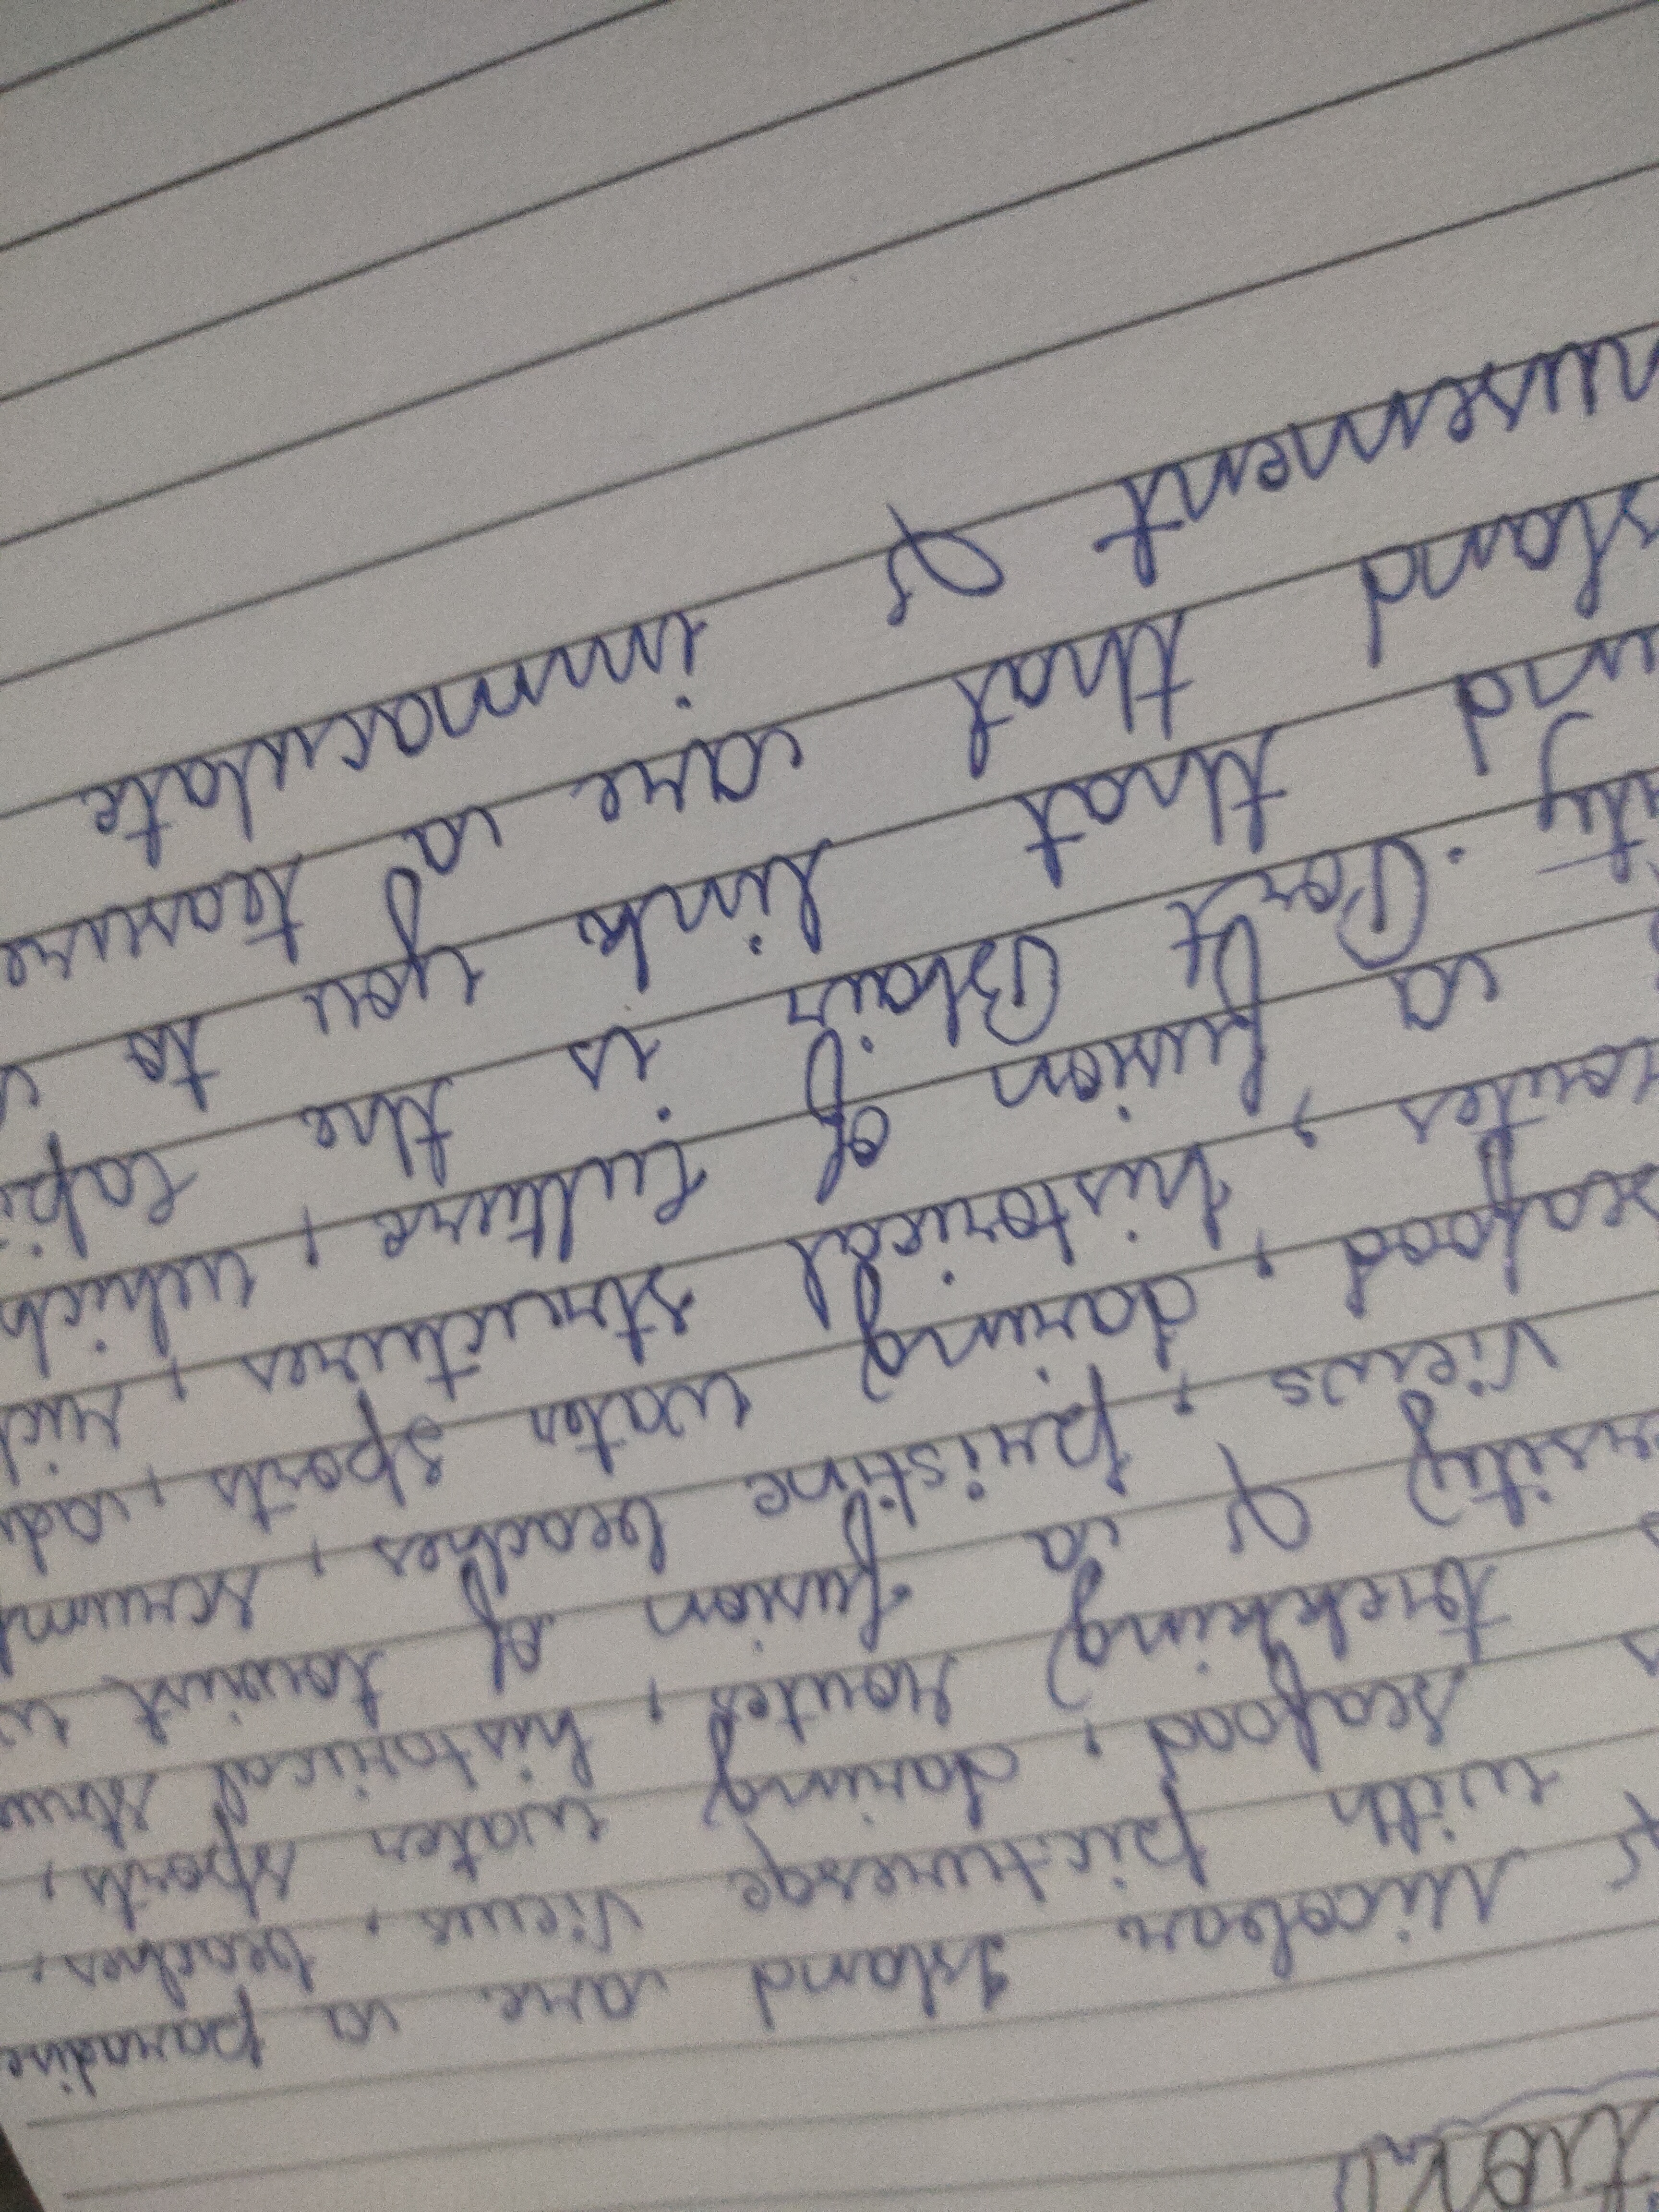 Nicobar Island are a paradise
& with picturesqe views, beaches,
seafood, daring water sports,
trekking routes, historical struc
ersity & a fusion of tourist w
views, pristine beaches, scrump
seafood, daring water sports, adv
routes, historical structures, rich
a fusion of culture, which
ity. Port Blair is the capi
and that link you to
sland that are a teasure
musement & immaculate